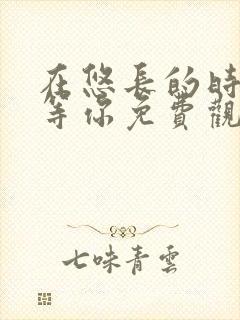 在悠長的時
等你免費觀
七味青雲